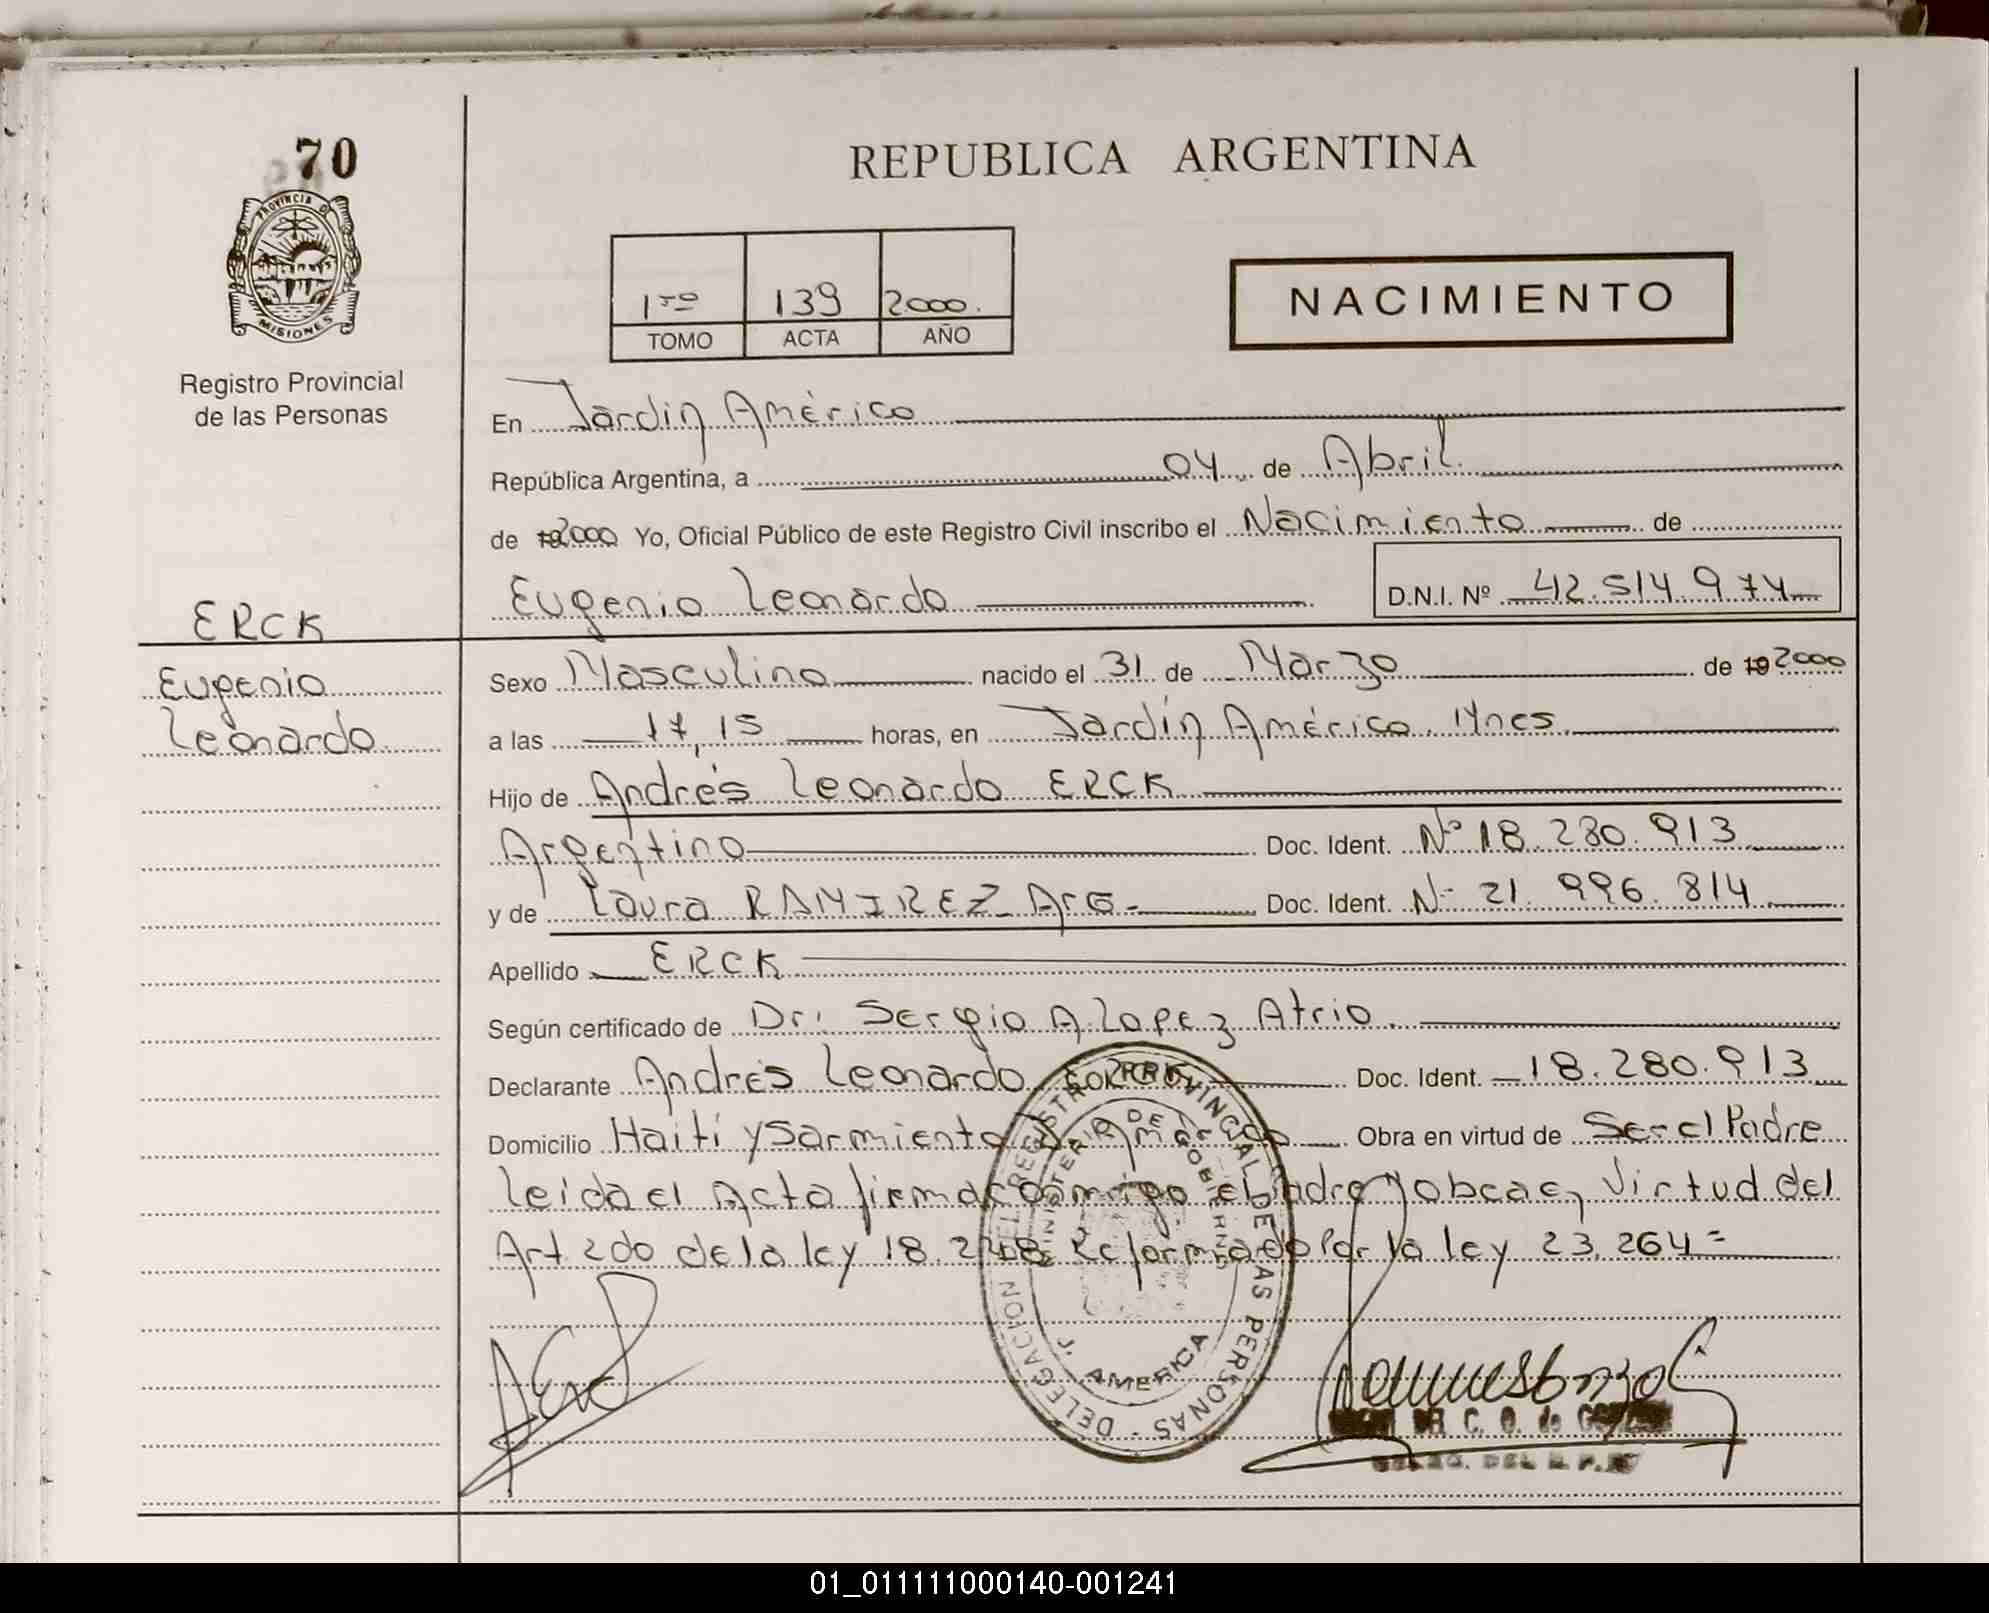 70
PROVINCIA D
MISIONES
Registro Provincial
de las Personas
REPUBLICA ARGENTINA
1ro 139 2000.
TOMO ACTA AÑO
NACIMIENTO
En Jardin América
República Argentina, a 04 de Abril
de 19 2000 Yo, Oficial Público de este Registro Civil inscribo el Nacimiento de
Eugenio Leonardo D.N.I. Nº 42.514.974
ERCK
Eugenio
Leonardo
Sexo Masculino nacido el 31 de Marzo de 19 2000
a las 17,15 horas, en Jardín América. Mnes.
Hijo de Andrés Leonardo ERCK
Argentino Doc. Ident. Nº 18.280.913
y de Laura RAMIREZ - Arg - Doc. Ident. Nº 21.996.814
Apellido ERCK
Según certificado de Dr. Sergio A. Lopez Atrio
Declarante Andrés Leonardo ERCK Doc. Ident. 18.280.913
Domicilio Haití y Sarmiento Obra en virtud de Ser el Padre
leida el Acta firma conmigo el Padre y obra en Virtud del
Art 2do de la ley 18.248 Reformado Por la ley 23.264 =
DELEGACION DEL REGISTRO PROVINCIAL DE LAS PERSONAS
MINISTERIO DE GOBIERNO
J. AMERICA
01_011111000140-001241